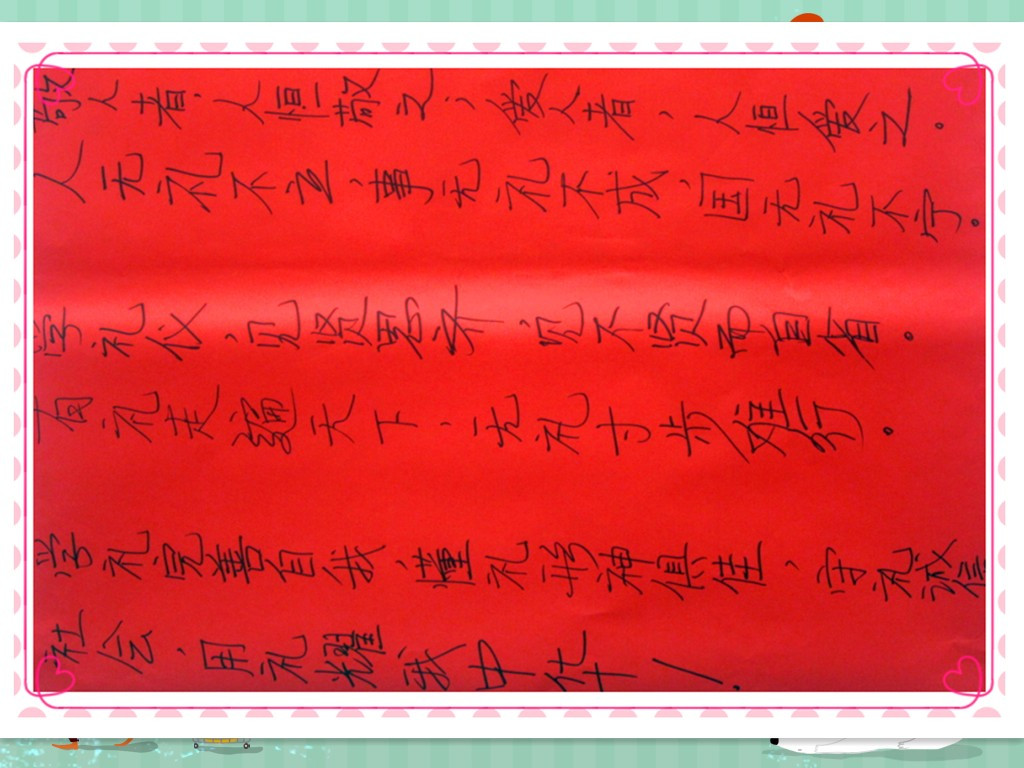 敬人者，人恒敬之，爱人者，人恒爱之。
人无礼不立，事无礼不成，国无礼不宁。
学礼仪，见贤思齐 见不贤而自省。
有礼走遍天下，无礼寸步难行。
学礼完善自我，懂礼形神俱佳，守礼诚信
社会，用礼耀我中华！